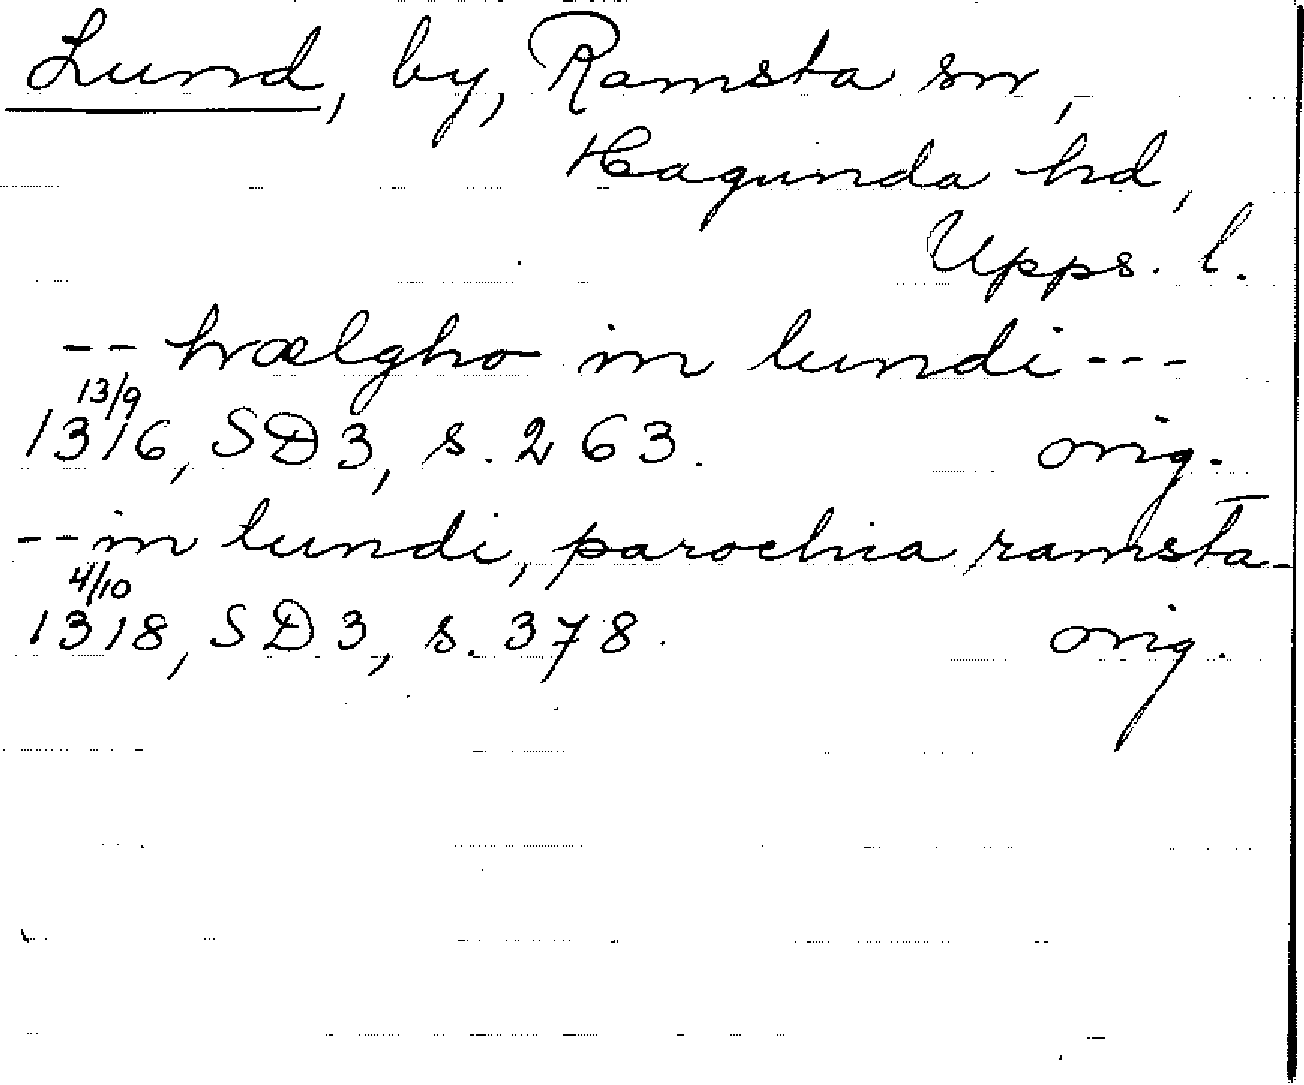 Lund, by, Ramsta sn,
Hagunda hd,
Upps. l.
-- hrælgho in lundi ---
13/9
1316, SD3, s. 263. orig.
-- in lundi, parochia ramsta-
4/10
1318, SD3, s. 378. orig.